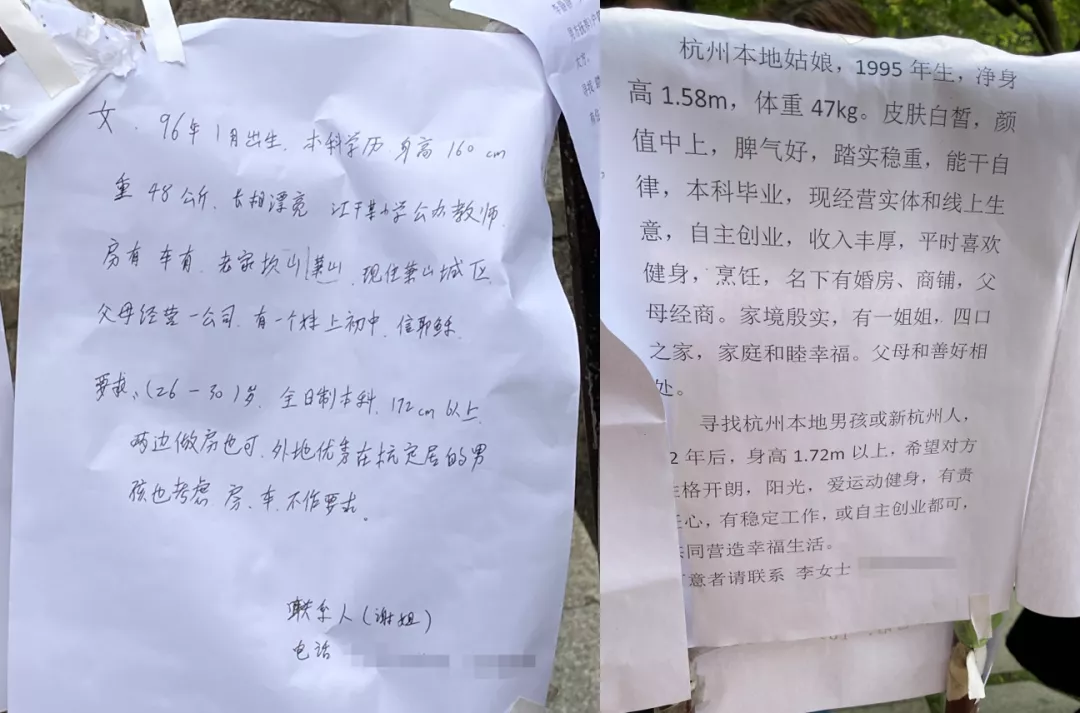 女，96年1月出生．本科学历 身高160cm
重48公斤．长相漂亮 江干某小学公办教师．
房有 车有．老家坎山（萧山）．现住萧山城区．
父母经营一公司．有一个妹上初中．信耶稣．
要求：（26－30）岁．全日制本科．172cm以上．
两边做房也可．外地优秀在杭定居的男
孩也考虑．房、车．不作要求。
联系人（谢姐）
电话
杭州本地姑娘，1995年生，净身
高1.58m，体重47kg。皮肤白皙，颜
值中上，脾气好，踏实稳重，能干自
律，本科毕业，现经营实体和线上生
意，自主创业，收入丰厚，平时喜欢
健身，烹饪，名下有婚房、商铺，父
母经商。家境殷实，有一姐姐，四口
之家，家庭和睦幸福。父母和善好相
处。
寻找杭州本地男孩或新杭州人，
2年后，身高1.72m以上，希望对方
格开朗，阳光，爱运动健身，有责
心，有稳定工作，或自主创业都可，
同营造幸福生活。
意者请联系 李女士